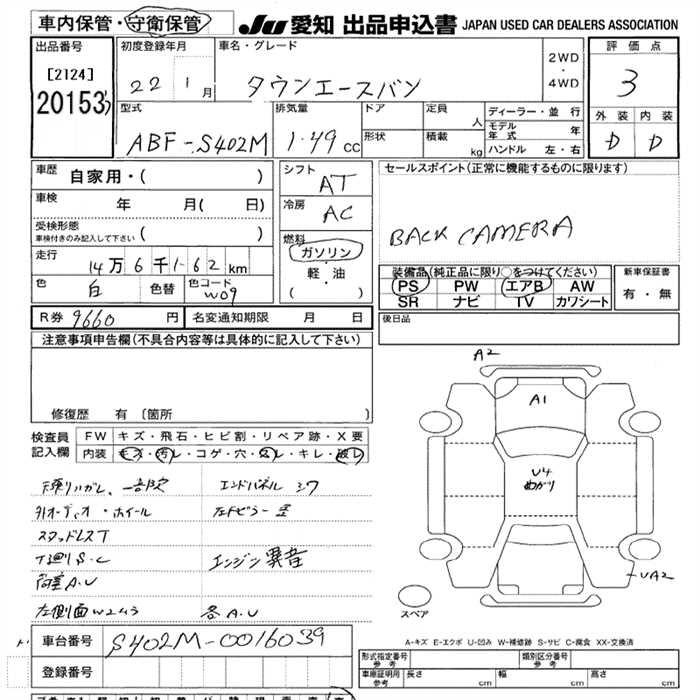 車内保管・守衛保管 JU 愛知 出品申込書 JAPAN USED CAR DEALERS ASSOCIATION
出品番号 初度登録年月 車名・グレード 2WD・4WD 評価点
[2124] 22 1月 タウンエースバン 3
20153
型式 排気量 ドア 定員 人 ディーラー・並行 外装 内装
ABF-S402M 1.49cc 形状 積載 kg モデル年式 年 D D
ハンドル 左・右
車歴 自家用・( ) シフト AT セールスポイント(正常に機能するものに限ります)
車検 年 月( 日) 冷房 AC
受検形態 車検付きのみ記入して下さい ( ) BACK CAMERA
燃料 ガソリン 軽・油 ( )
走行 14万6千162km
色 白 色替 色コード W09
装備品(純正品に限り○をつけてください) 新車保証書
PS PW エアB AW 有・無
SR ナビ TV カワシート
R券 9660円 名変通知期限 月 日 後日品
注意事項申告欄(不具合内容等は具体的に記入して下さい)
修復歴 有 [箇所 ]
検査員記入欄 FW キズ・飛石・ヒビ割・リペア跡・X要
内装 キズ・汚レ・コゲ・穴・ス レ・キレ・破レ
エンドパネル
外オーディオ・ホイール
スタッドレスT
下廻りS.C エンジン異音
荷室A.U
左側面W2 各A.U
A2
A1
U4
めがり
UA2
スペア
A-キズ E-エクボ U-凹み W-補修跡 S-サビ C-腐食 XX-交換済
車台番号 S402M-0016039
登録番号
形式指定番号 参考 類別区分番号 参考
車庫証明用 参考 長さ cm 幅 cm 高さ cm